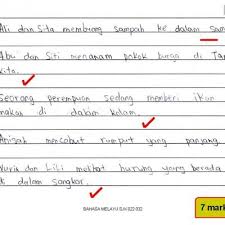 Ali dan Sita membuang sampah ke dalam sam
Abu dan Siti menanam pokok bunga di Tam
kita.
Seorang perempuan sedang memberi ikan
makan di dalam kolam.
Anisah mencabut rumput yang panjang
dan Lili melihat burung yang berada
dalam sangkar.
BAHASA MELAYU SJK
7 mark